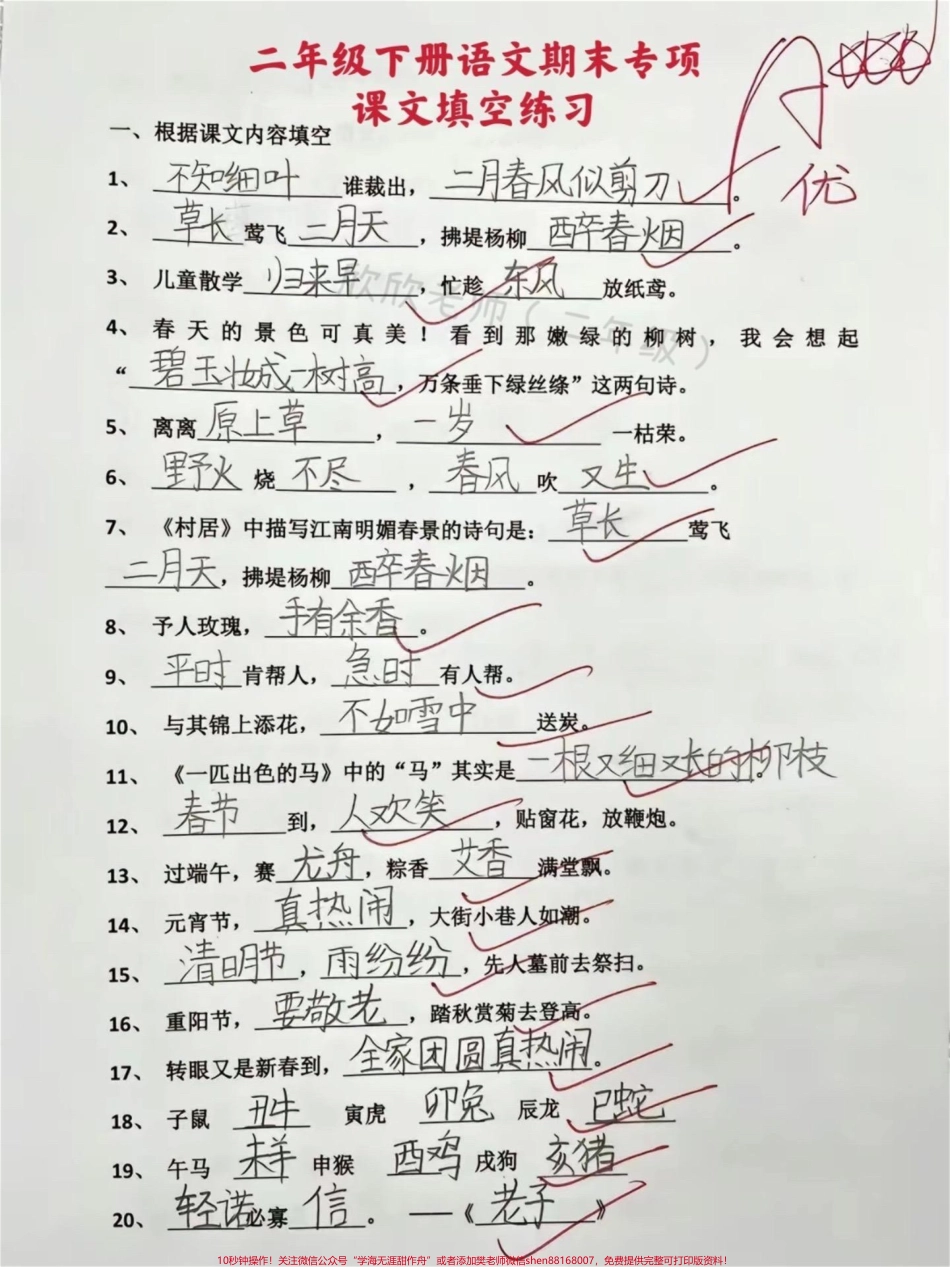 二年级下册语文期末专项
课文填空练习
优
一、根据课文内容填空
1、 不知细叶谁裁出，二月春风似剪刀。
2、 草长莺飞二月天，拂堤杨柳醉春烟。
3、 儿童散学归来早，忙趁东风放纸鸢。
欣欣老师（二年级）
4、 春天的景色可真美！看到那嫩绿的柳树，我会想起
“碧玉妆成一树高，万条垂下绿丝绦”这两句诗。
5、 离离原上草，一岁一枯荣。
6、 野火烧不尽，春风吹又生。
7、 《村居》中描写江南明媚春景的诗句是：草长莺飞
二月天，拂堤杨柳醉春烟。
8、 予人玫瑰，手有余香。
9、 平时肯帮人，急时有人帮。
10、 与其锦上添花，不如雪中送炭。
11、 《一匹出色的马》中的“马”其实是一根又细又长的柳枝。
12、 春节到，人欢笑，贴窗花，放鞭炮。
13、 过端午，赛龙舟，粽香艾香满堂飘。
14、 元宵节，真热闹，大街小巷人如潮。
15、 清明节，雨纷纷，先人墓前去祭扫。
16、 重阳节，要敬老，踏秋赏菊去登高。
17、 转眼又是新春到，全家团圆真热闹。
18、 子鼠 丑牛 寅虎 卯兔 辰龙 巳蛇
19、 午马 未羊 申猴 酉鸡 戌狗 亥猪
20、 轻诺必寡信。 ——《老子》
10秒钟操作！关注微信公众号“学海无涯甜作舟”或者添加樊老师微信shen88168007，免费提供完整可打印版资料！